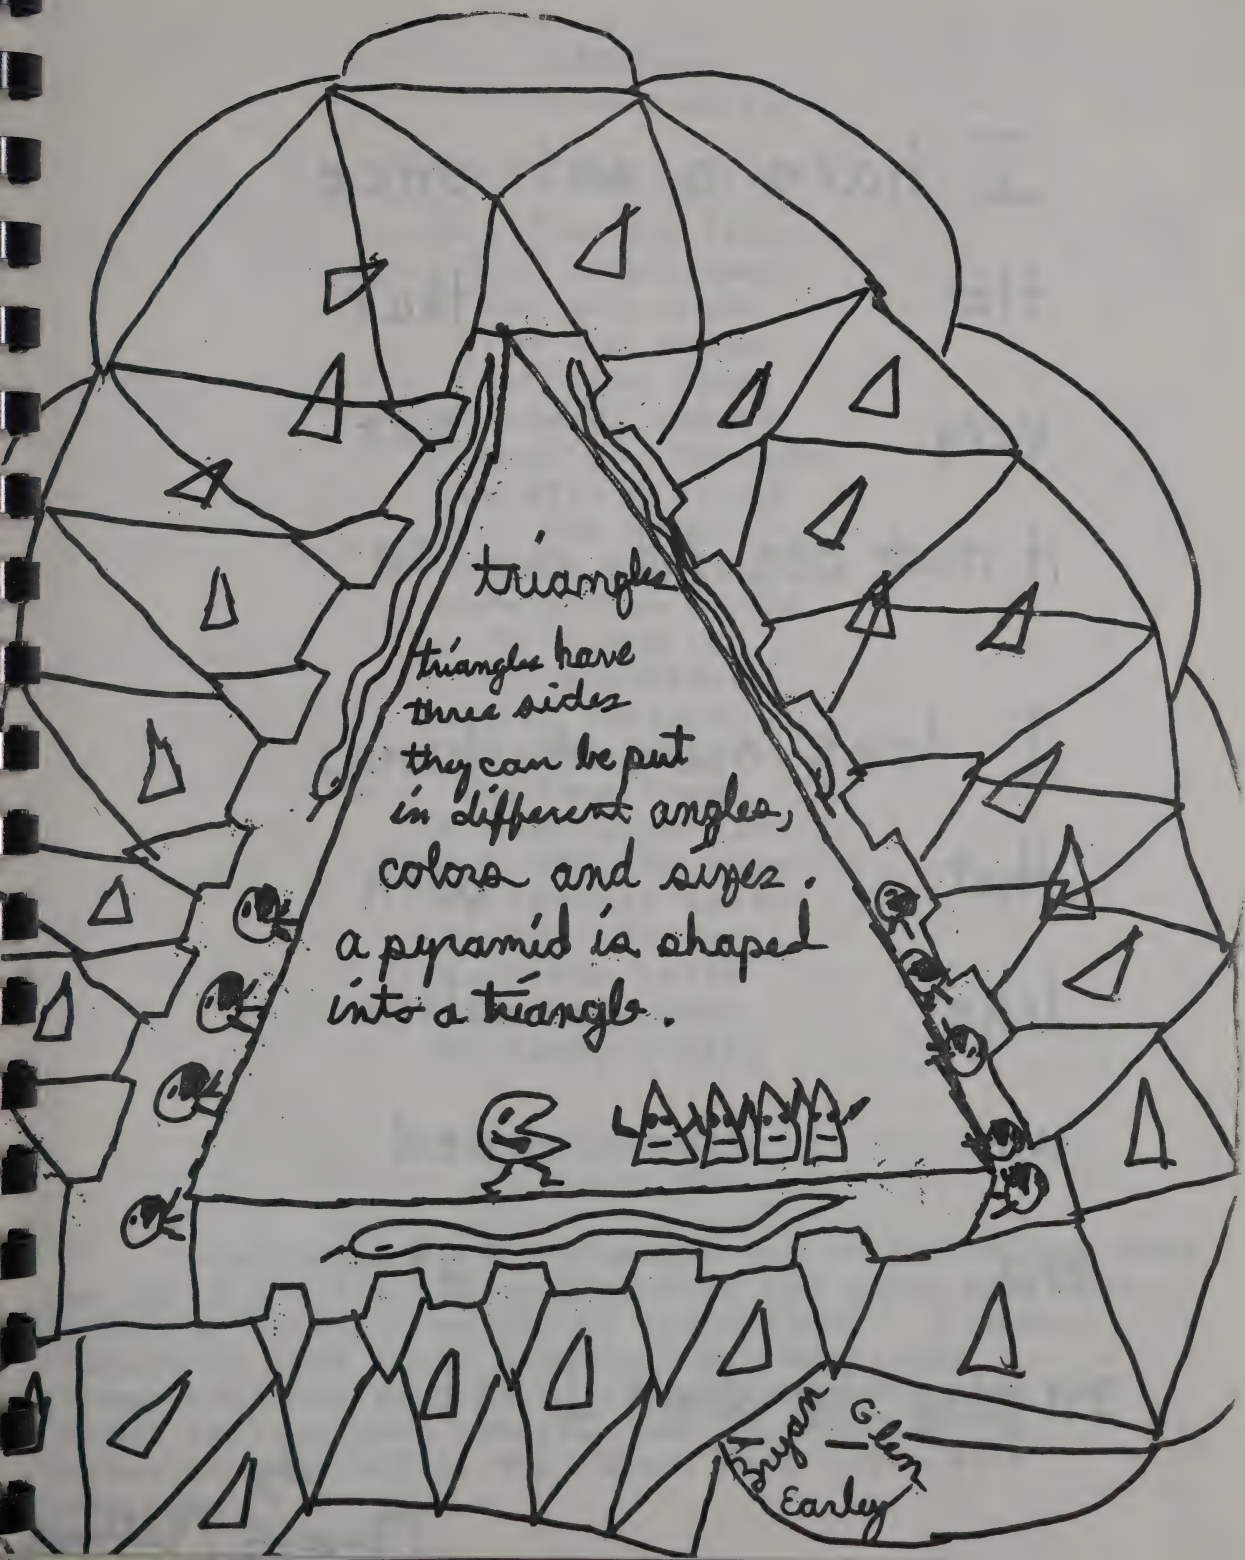 triangles
triangles have
three sides
they can be put
in different angles,
colors and sizes.
a pyramid is shaped
into a triangle.
Bryan
Glen
Earley